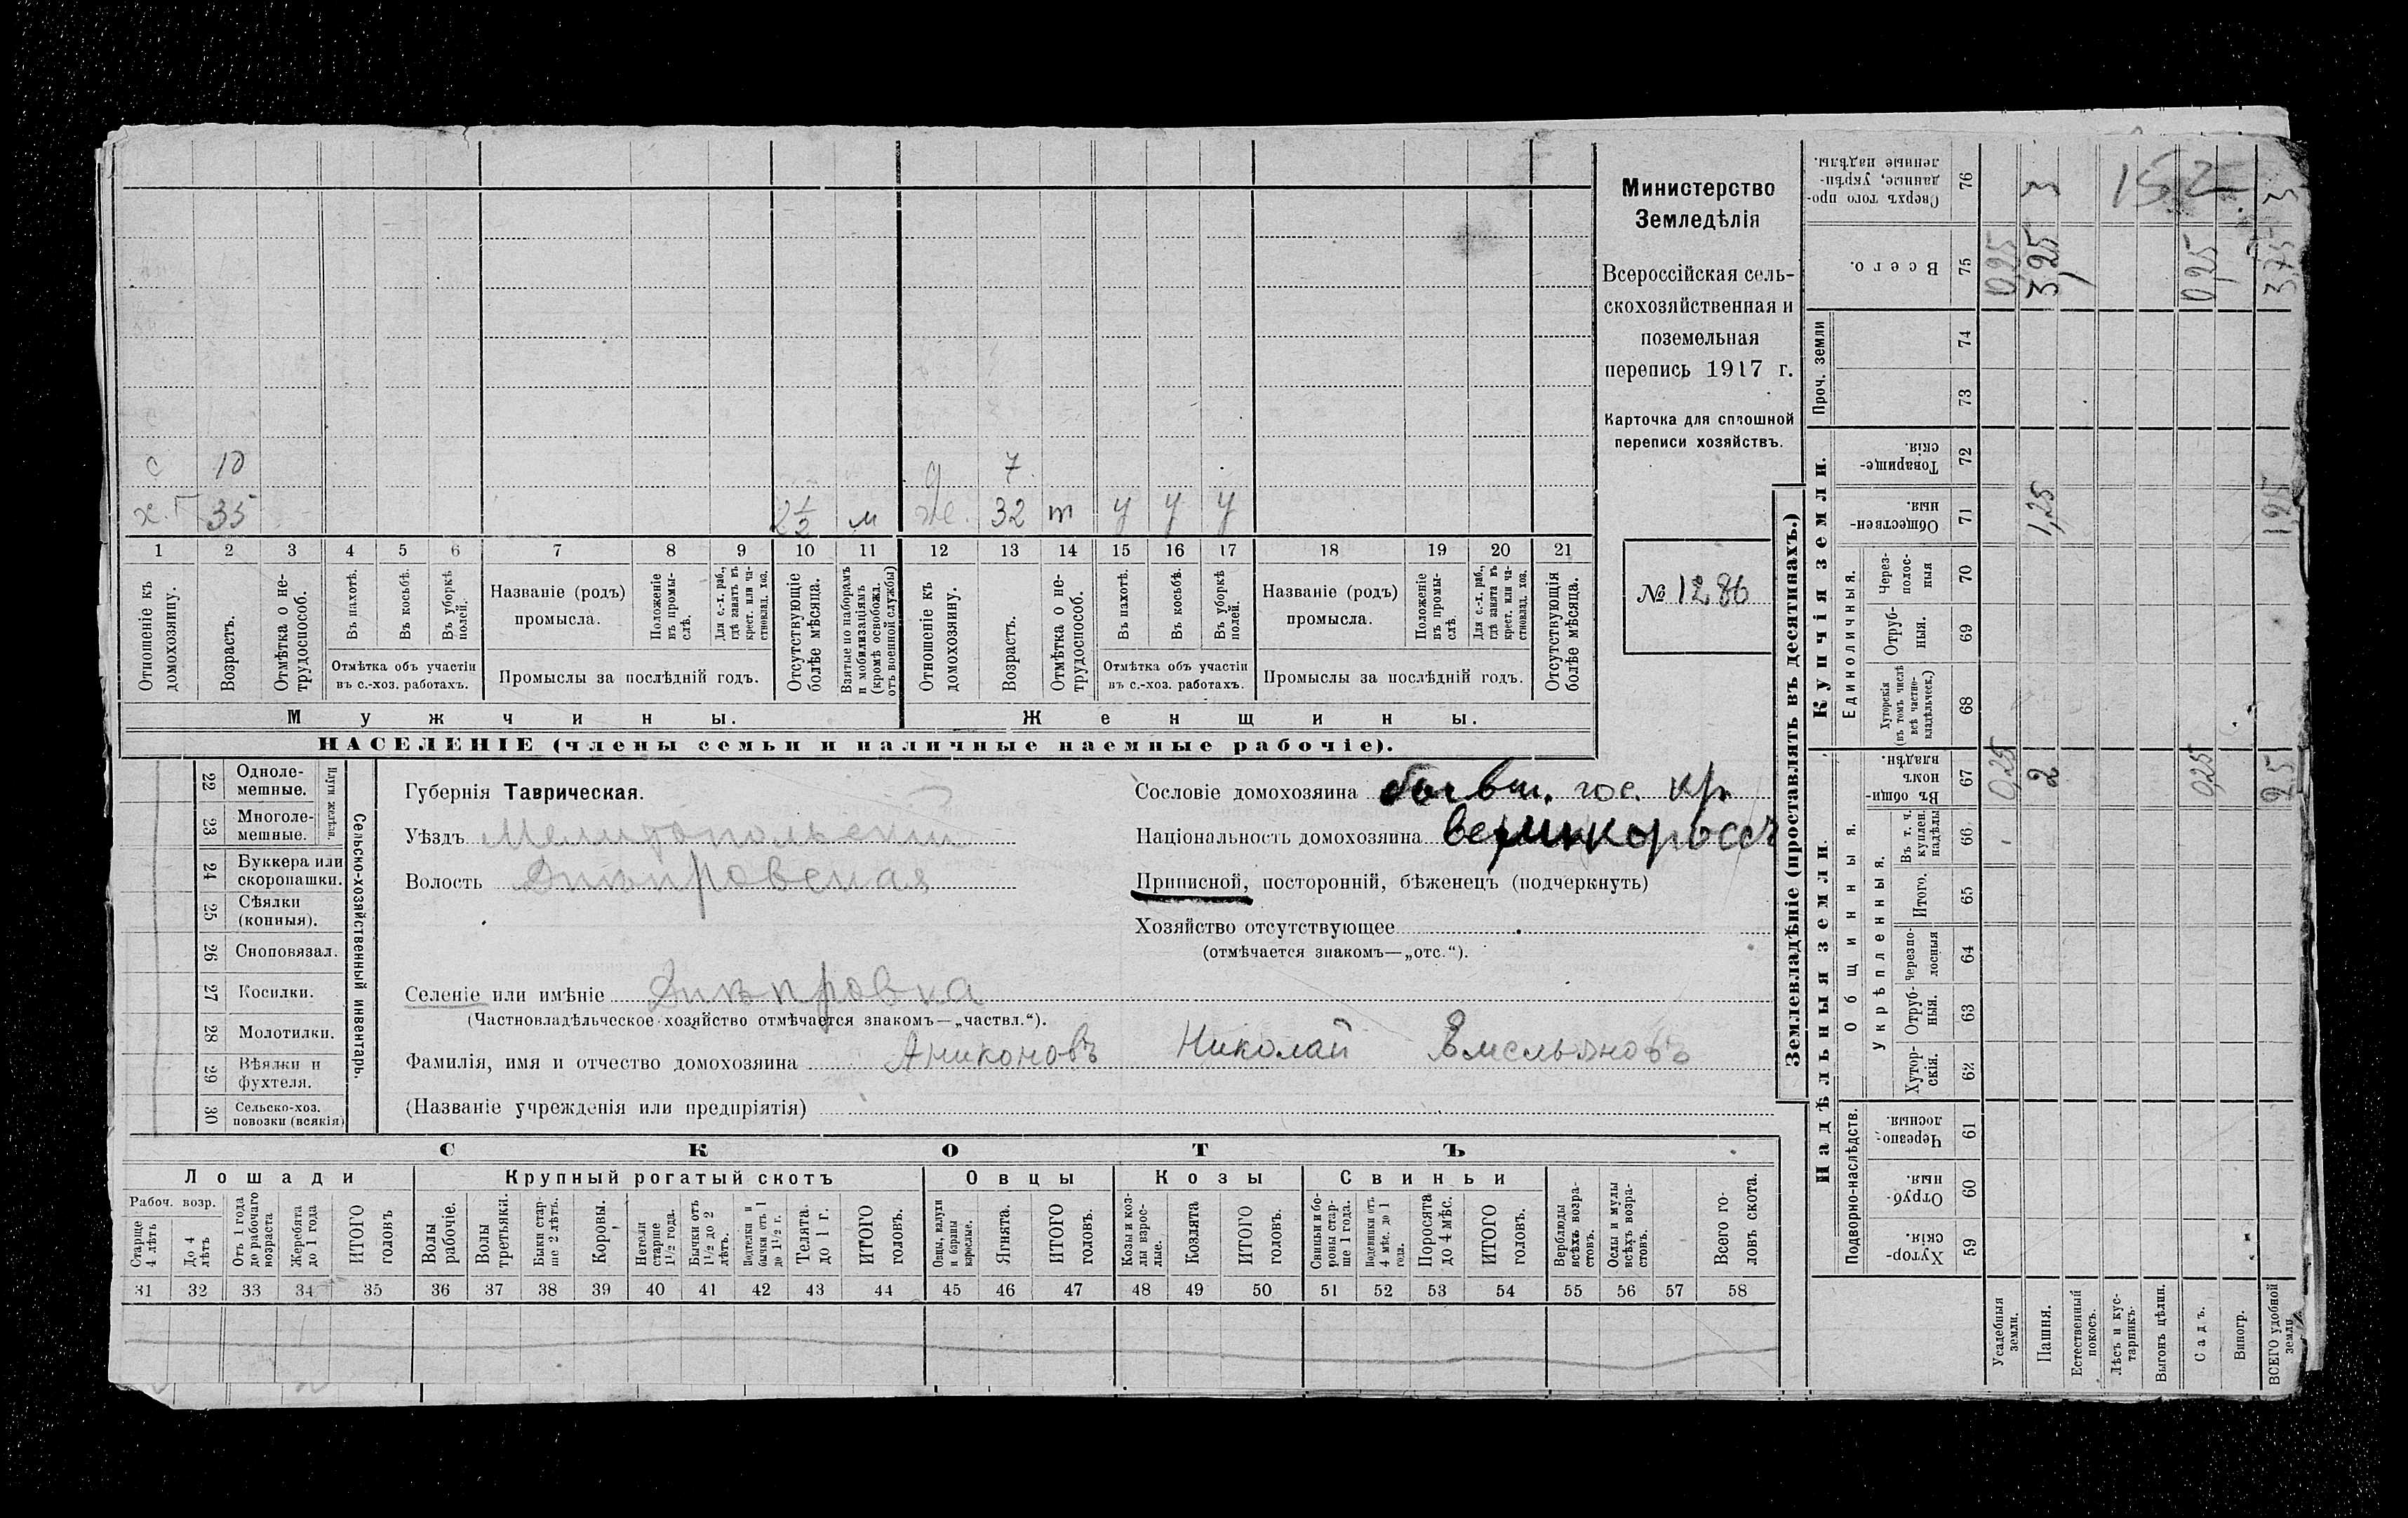 с 10 д 7
х. Г 35 2 1/2 м же. 32 т у у у
1 2 3 4 5 6 7 8 9 10 11 12 13 14 15 16 17 18 19 20 21
Отношеніе къ домохозяину.
Возрастъ.
Отмѣтка о не-трудоспособ.
Въ пахотѣ.
Въ косьбѣ.
Въ уборкѣ полей.
Отмѣтка объ участіи
въ с.-хоз. работахъ.
Названіе (родъ)
промысла.
Положеніе въ промы-слѣ.
Для с.-х. раб., гдѣ занятъ въ крест. или ча-стновлад. хоз.
Промыслы за послѣдній годъ.
Отсутствующіе болѣе мѣсяца.
Взятые по наборамъ и мобилизаціямъ (кромѣ освобожд. отъ военной службы)
Отношеніе къ домохозяину.
Возрастъ.
Отмѣтка о не-трудоспособ.
Въ пахотѣ.
Въ косьбѣ.
Въ уборкѣ полей.
Отмѣтка объ участіи
въ с.-хоз. работахъ.
Названіе (родъ)
промысла.
Положеніе въ промы-слѣ.
Для с.-х. раб., гдѣ занята въ крест. или ча-стновлад. хоз.
Промыслы за послѣдній годъ.
Отсутствующія болѣе мѣсяца.
Мужчины.
Женщины.
НАСЕЛЕНІЕ (члены семьи и наличные наемные рабочіе).
Министерство
Земледѣлія
Всероссійская сель-
скохозяйственная и
поземельная
перепись 1917 г.
Карточка для сплошной
переписи хозяйствъ.
№ 1286
22 Одноле-
мешные.
23 Многоле-
мешные.
Плуги желѣзн.
24 Буккера или
скоропашки.
25 Сѣялки
(конныя).
26 Сноповязал.
27 Косилки.
28 Молотилки.
29 Вѣялки и
фухтеля.
30 Сельско-хоз.
повозки (всякія)
Сельско-хозяйственный инвентарь.
Губернія Таврическая.
Уѣздъ Мелитопольскій
Волость Днѣпровская
Селеніе или имѣніе Днѣпровка
(Частновладѣльческое хозяйство отмѣчается знакомъ—„частвл.“).
Фамилія, имя и отчество домохозяина Аниконовъ Николай Емельяновъ
(Названіе учрежденія или предпріятія)
Сословіе домохозяина бывш. гос. кр.
Національность домохозяина великороссъ
Приписной, посторонній, бѣженецъ (подчеркнуть)
Хозяйство отсутствующее
(отмѣчается знакомъ—„отс.“).
СКОТЪ
Лошади Крупный рогатый скотъ Овцы Козы Свиньи
Рабоч. возр.
Старше 4 лѣтъ
До 4 лѣтъ
Отъ 1 года до рабочаго возраста
Жеребята до 1 года
ИТОГО головъ
Волы рабочіе.
Волы третьяки.
Быки стар-ше 2 лѣтъ.
Коровы.
Нетели старше 1½ года.
Бычки отъ 1½ до 2 лѣтъ.
Подтелки и бычки отъ 1 до 1½ г.
Телята. до 1 г.
ИТОГО головъ.
Овцы, валухи и бараны взрослые.
Ягнята.
ИТОГО головъ.
Козы и коз-лы взрос-лые.
Козлята
ИТОГО головъ.
Свиньи и бо-ровы стар-ше 1 года.
Подсвинки отъ 4 мѣс. до 1 года.
Поросята до 4 мѣс.
ИТОГО головъ.
Верблюды всѣхъ возра-стовъ.
Ослы и мулы всѣхъ возра-стовъ.
Всего го-ловъ скота.
31 32 33 34 35 36 37 38 39 40 41 42 43 44 45 46 47 48 49 50 51 52 53 54 55 56 57 58
Землевладѣніе (проставлять въ десятинахъ.)
Надѣльныя земли.
Купчія земли.
Проч. земли
Подворно-наслѣдств.
Общинныя.
Укрѣпленныя.
Единоличныя.
Сверхъ того про-данные, укрѣп-ленные надѣлы. 76 3 15,2 3
Всего. 75 0,25 3,25 0,25 3,75
74
73
Товарище-скія. 72
Обществен-ныя. 71 1,25 1,25
Через-полос-ныя 70
Отруб-ныя. 69
Хуторскія (въ томъ числѣ всѣ частно-владѣльческ.) 68
Въ общи-номъ владѣн. 67 0,25 2 0,25 2,5
Въ т. ч. куплен. надѣлы 66
Итого. 65
Черезпо-лосныя 64
Отруб-ныя. 63
Хутор-скія. 62
Черезпо-лосныя. 61
Отруб-ныя. 60
Хутор-скія. 59
Усадебныя земли.
Пашня.
Естественный покосъ.
Лѣсъ и кус-тарникъ.
Выгонъ цѣлин.
Садъ.
Виногр.
ВСЕГО удобной земли